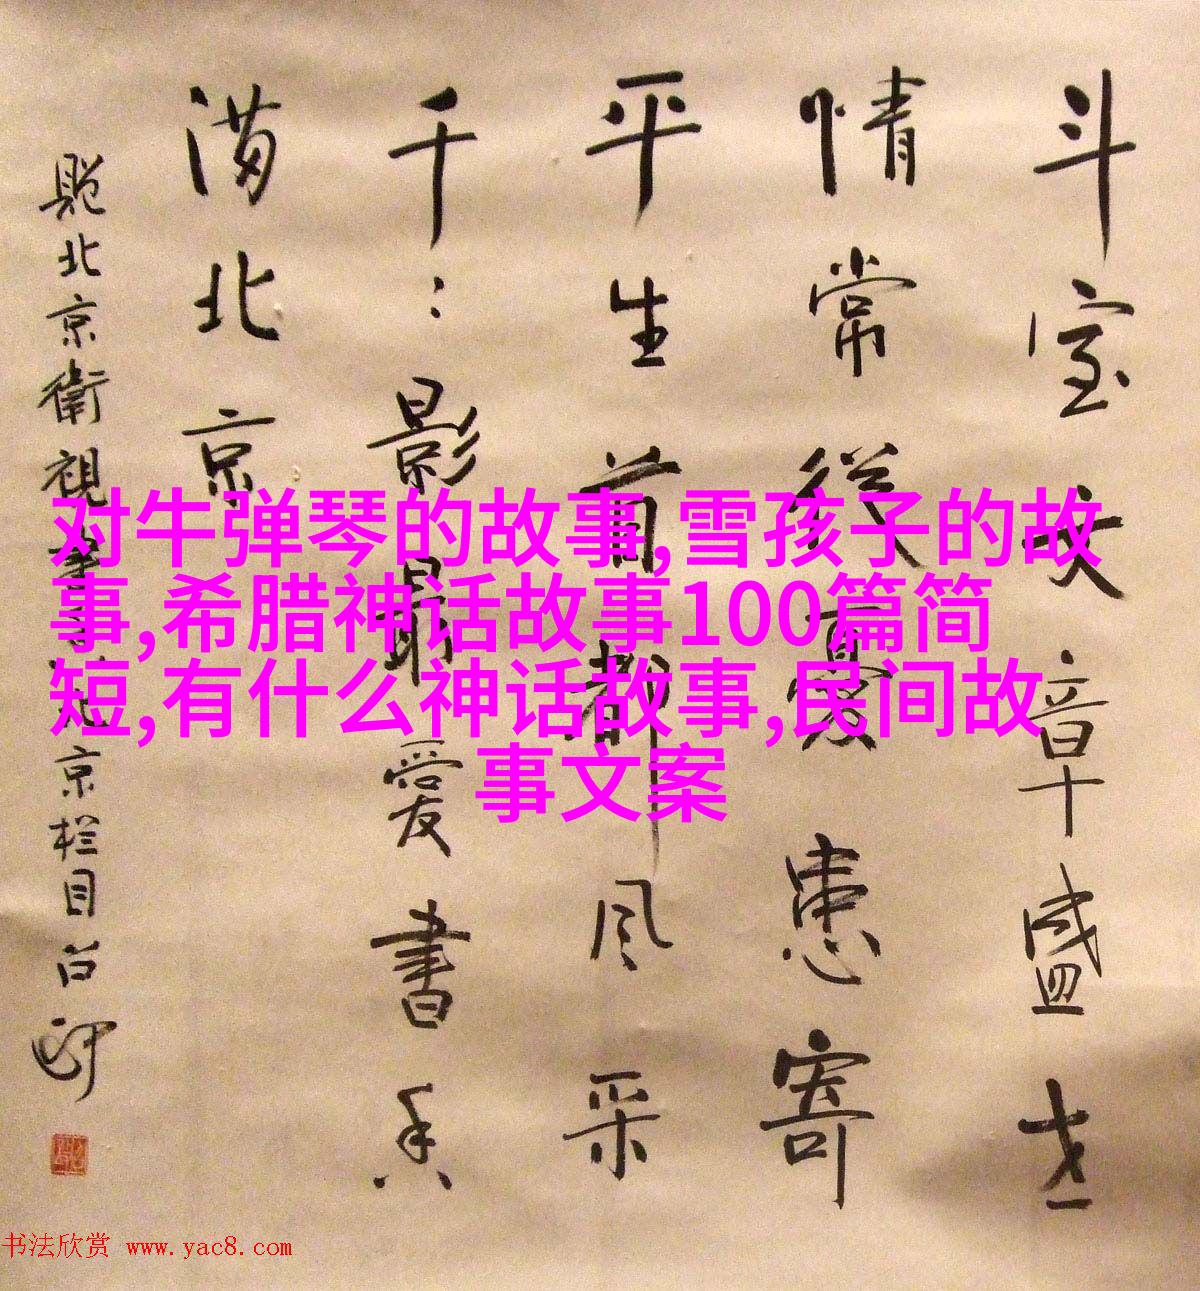 斗室文章盛世
情常从忧患寄
平生首都风采
千千影最爱书香
满北京
题北京卫视书香北京栏目
对牛弹琴的故事,雪孩子的故
事,希腊神话故事100篇简
短,有什么神话故事,民间故
事文案
书法欣赏 www.yac8.com